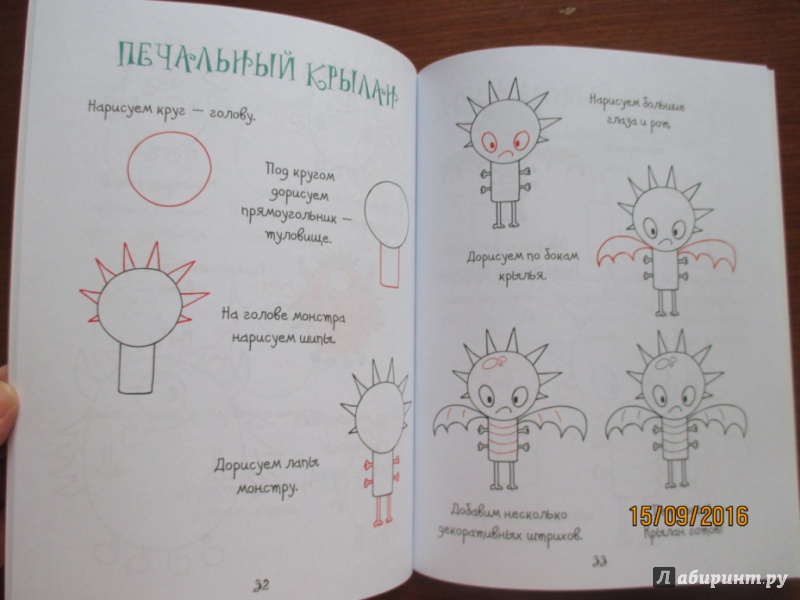 ПЕЧАЛЬНЫЙ КРЫЛАН
Нарисуем круг — голову.
Под кругом
дорисуем
прямоугольник —
туловище.
На голове монстра
нарисуем шипы.
Дорисуем лапы
монстру.
32
Нарисуем большие
глаза и рот.
Дорисуем по бокам
крылья.
Добавим несколько
декоративных штрихов.
Крылан готов!
33
15/09/2016
Лабиринт.ру